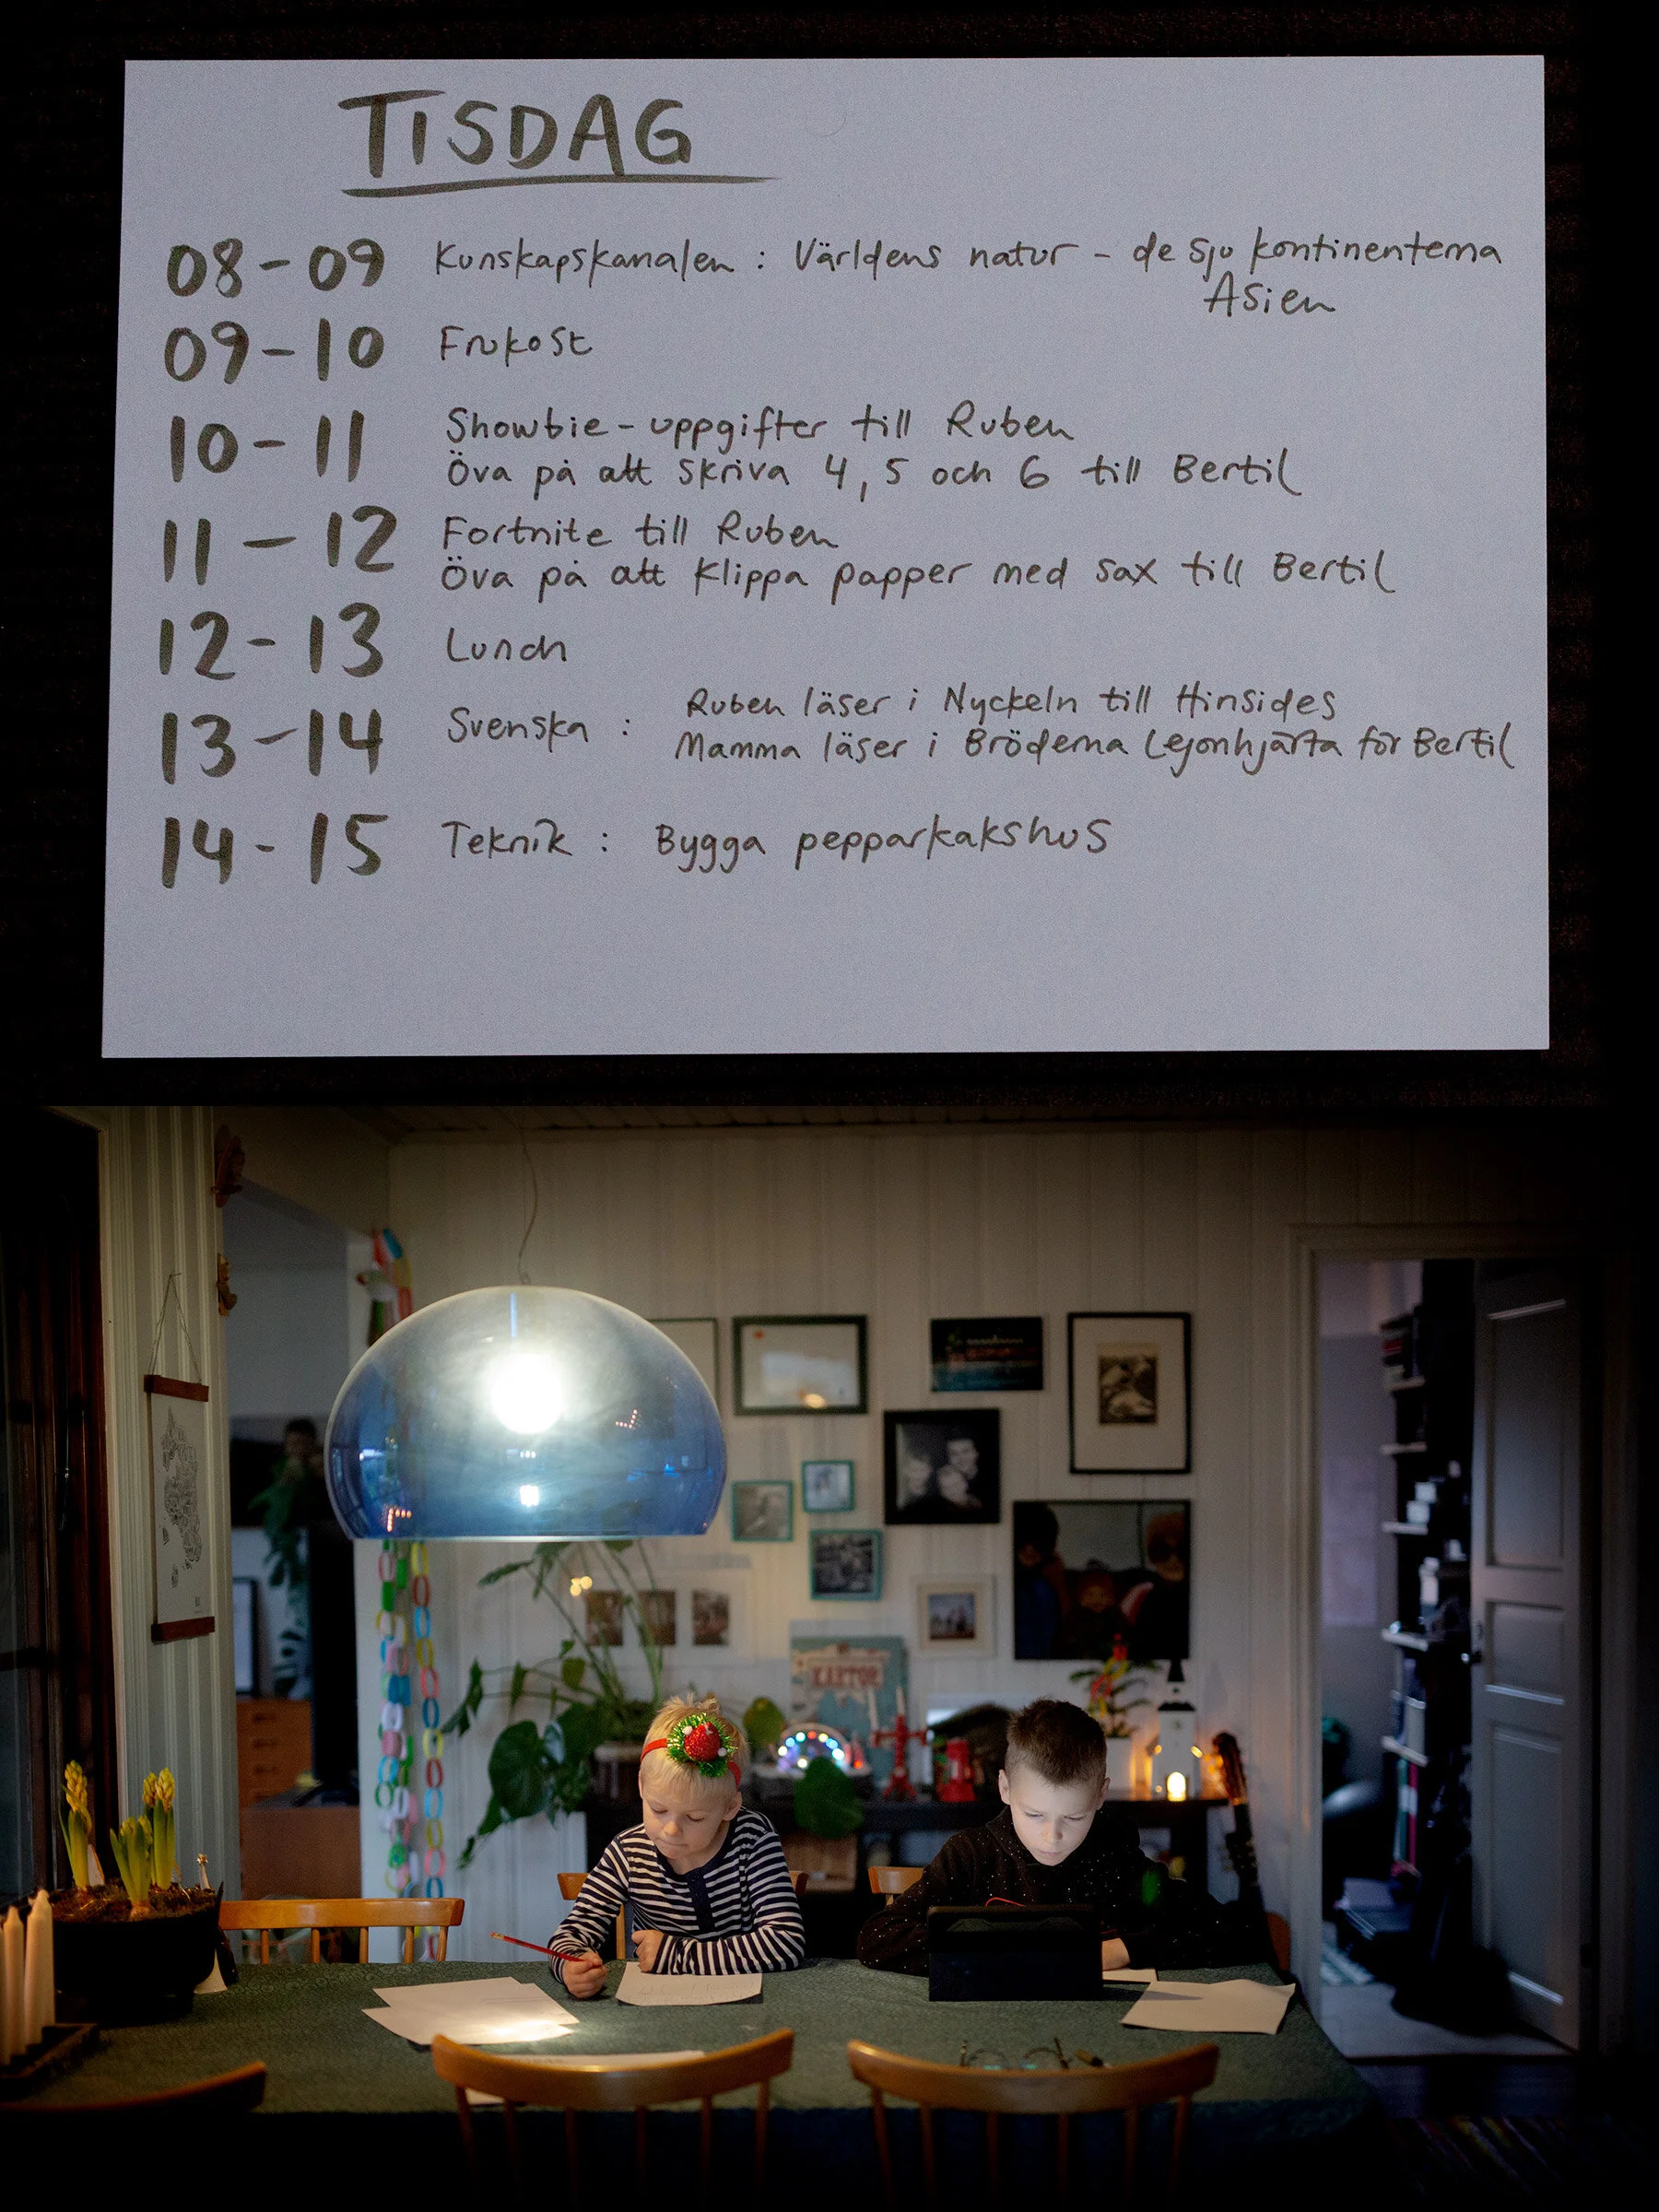 TISDAG
08-09 Kunskapskanalen : Världens natur - de sju kontinenterna
Asien
09-10 Frukost
10-11 Showbie-uppgifter till Ruben
Öva på att skriva 4, 5 och 6 till Bertil
11-12 Fortnite till Ruben
Öva på att klippa papper med sax till Bertil
12-13 Lunch
13-14 Svenska : Ruben läser i Nyckeln till Hinsides
Mamma läser i Bröderna Lejonhjärta för Bertil
14-15 Teknik : Bygga pepparkakshus
KARTOR